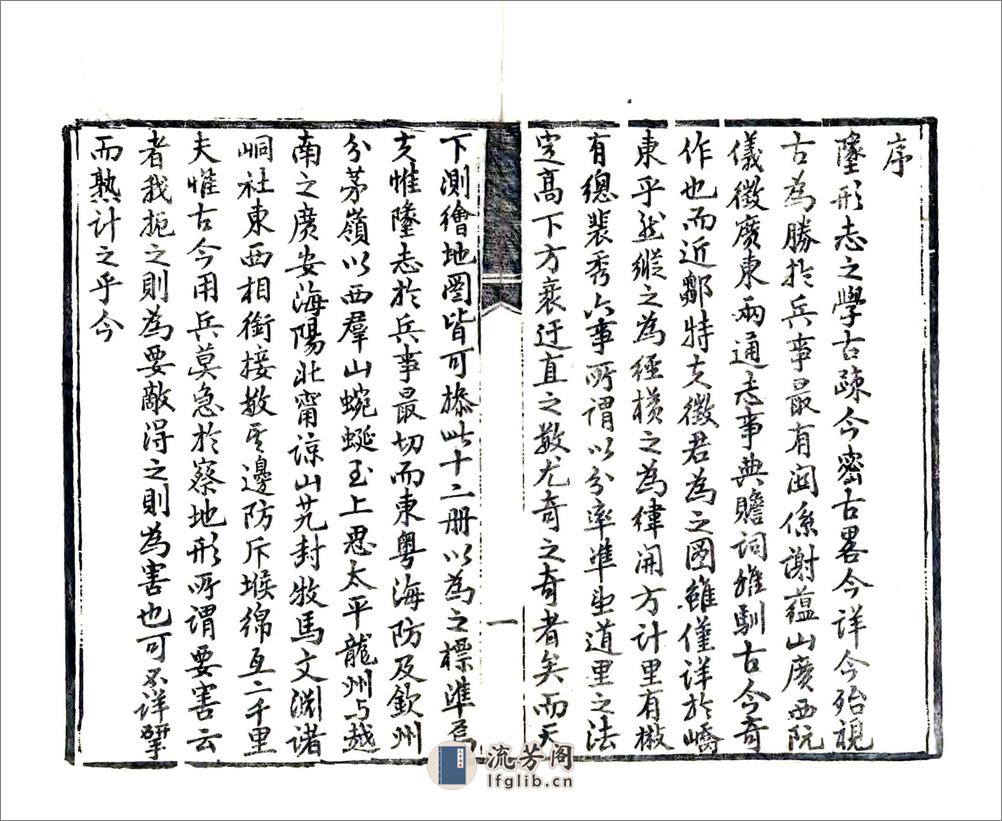 序
墬形志之學古疎今密古畧今詳今殆視
古為勝扵兵事最有関係謝蘊山廣西阮
儀徵廣東兩通志事典贍詞雅馴古今奇
作也而近鄒特夫徵君為之圖雖僅詳於嶠
東乎然縱之為經橫之為緯開方計里有
有總裴秀六事所謂以分率準望道里之法
定高下方衺迂直之數尤奇之奇者矣而天
一
下測繪地圖皆可㨿此十二冊以為之標準焉
夫惟墬志於兵事最切而東粵海防及欽州
分茅嶺以西羣山蜿蜒至上思太平龍州与越
南之廣安海陽北甯諒山艽封牧馬文淵諸
峒社東西相銜接邊防斥堠綿亙二千里
夫惟古今用兵莫急於察地形所謂要害云
者我扼之則為要敵得之則為害也可不詳
而熟計之乎今
流芳阁
lfglib.cn